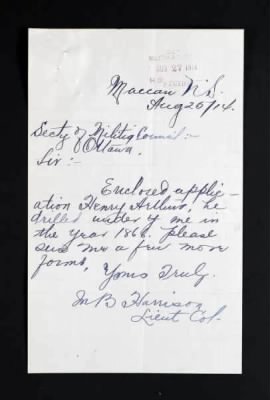 AUG 27 1914
Maccan N.S.
Aug 25/14.
Secty of Militia Council:-
Ottawa.
Sir:-
Enclosed applic-
ation Henry Arthur, he
drilled under me in
the year 1866. please
send me a few more
forms,
Yours Truly.
M B Harrison
Lieut Col.